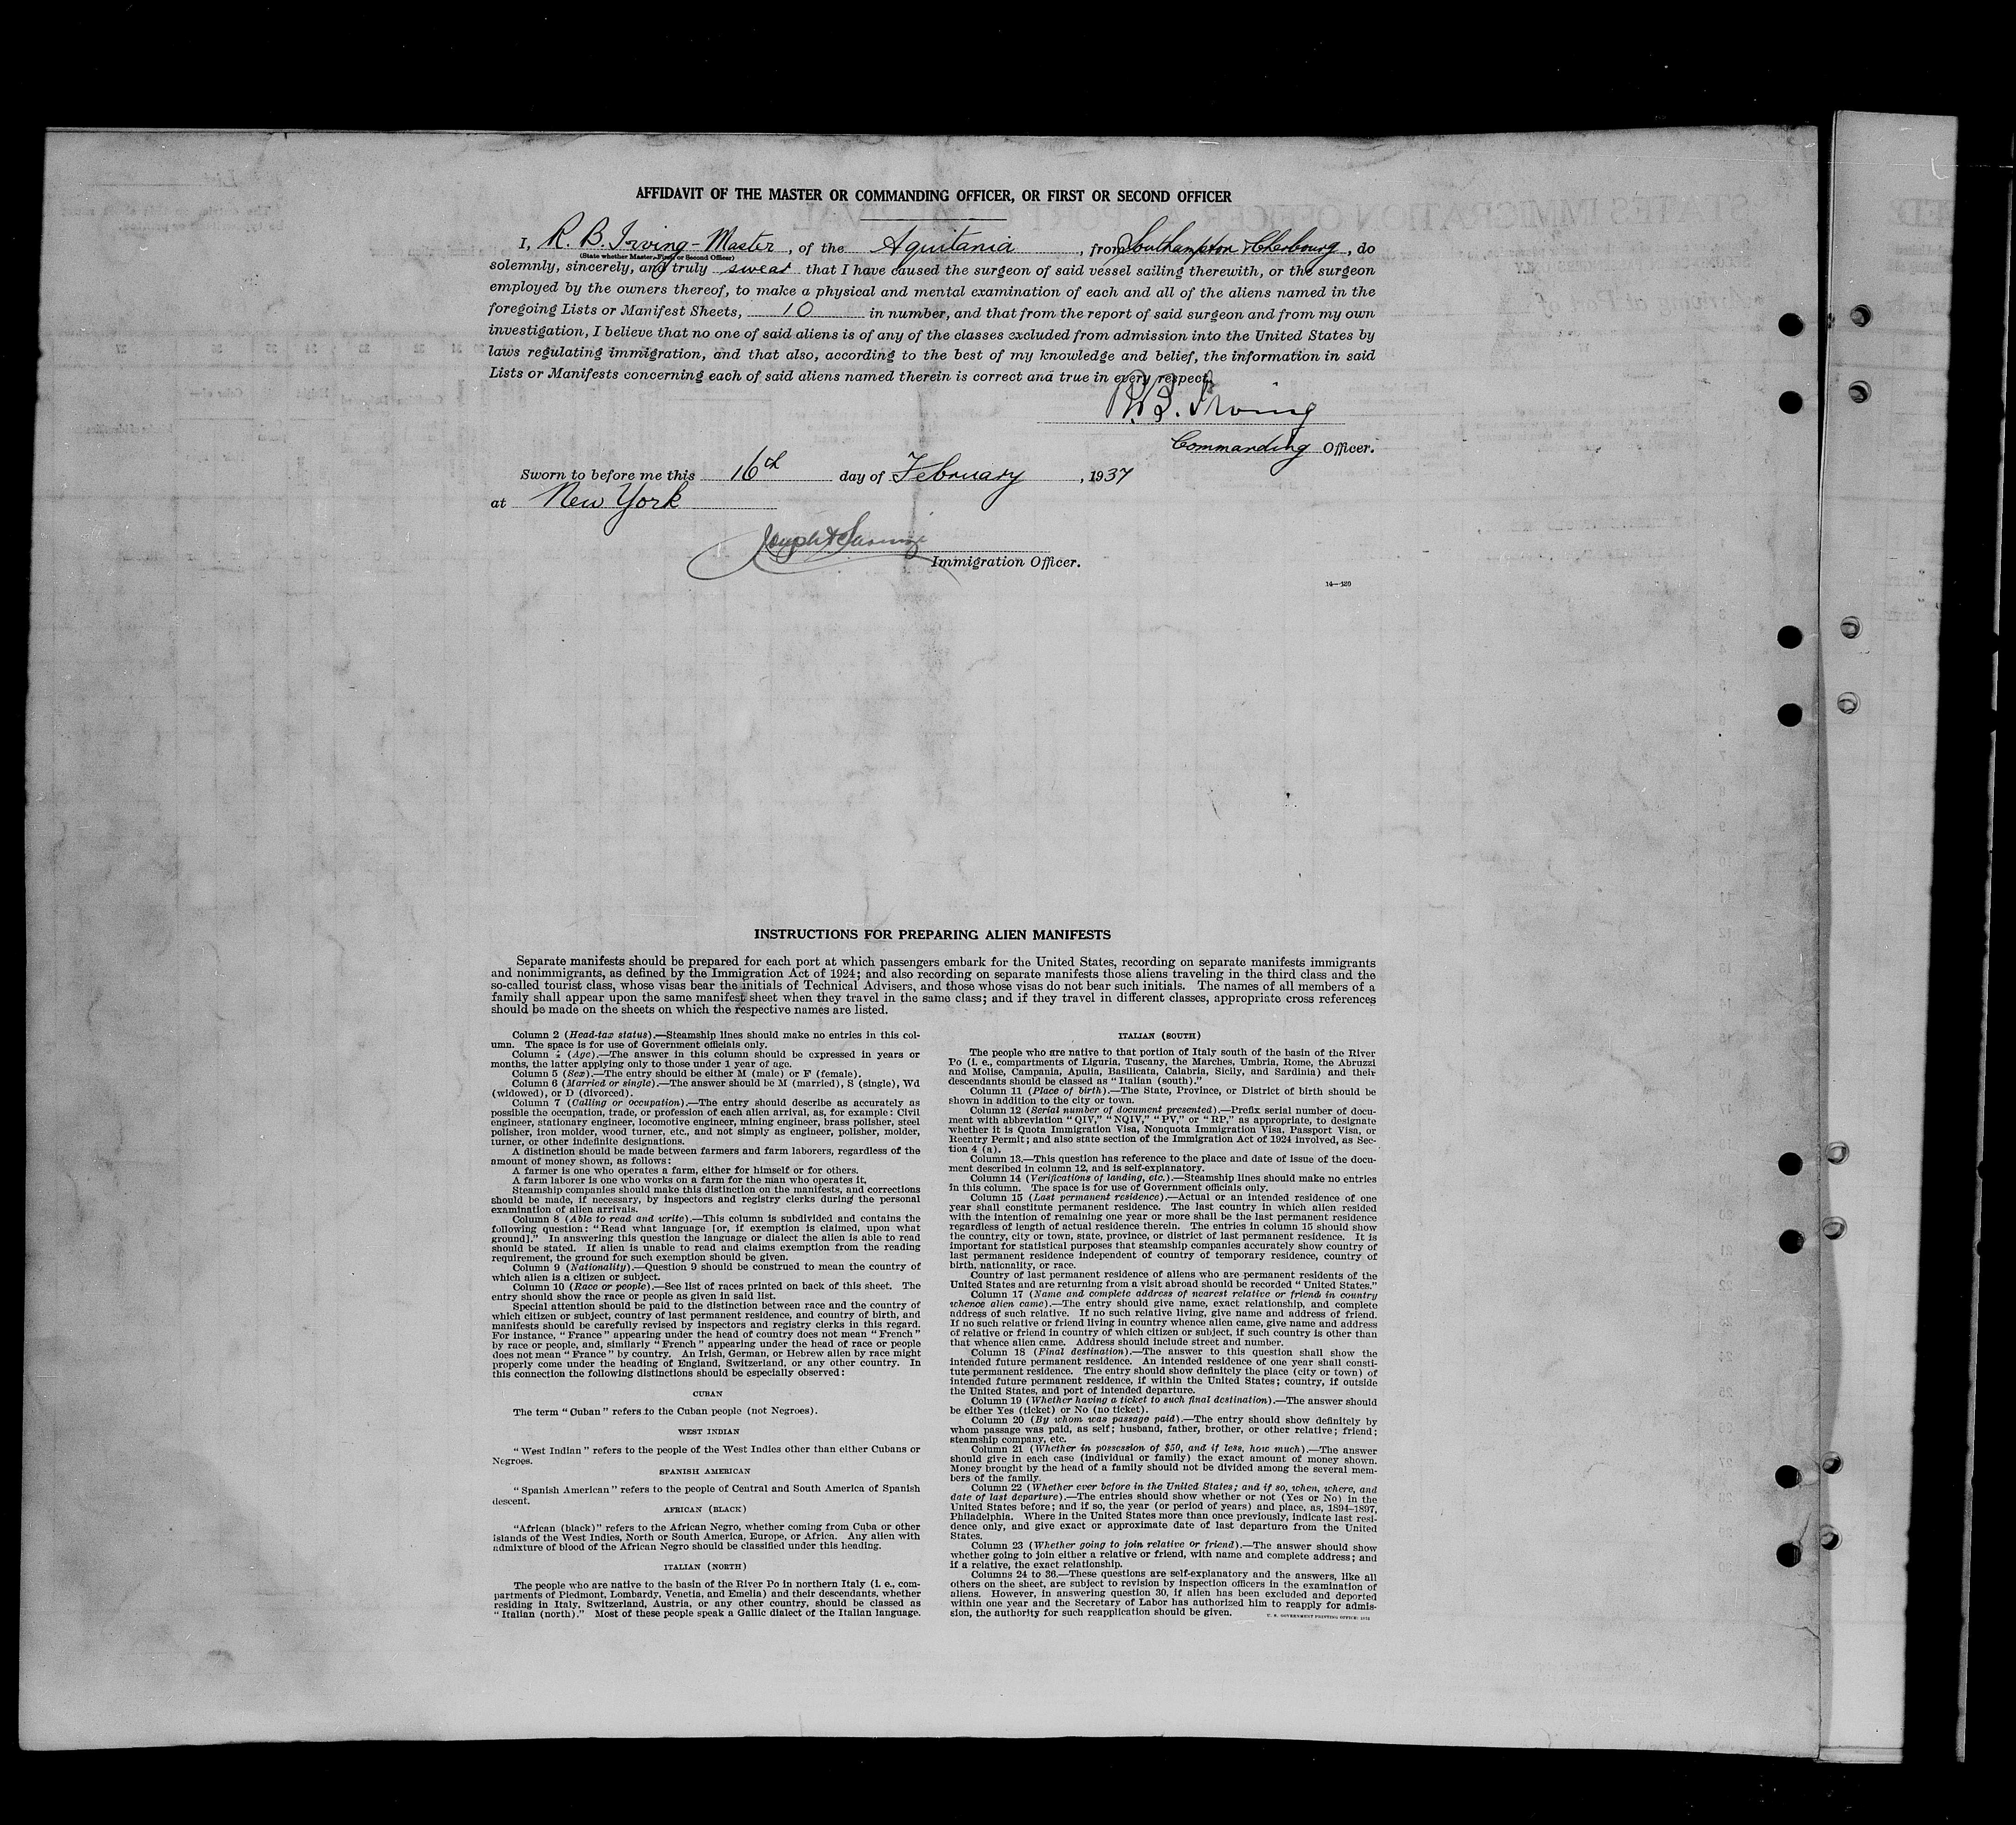 AFFIDAVIT OF THE MASTER OR COMMANDING OFFICER, OR FIRST OR SECOND OFFICER
I, R. B. Irving - Master, of the Aquitania, from Southampton & Cherbourg, do
(State whether Master, First, or Second Officer)
solemnly, sincerely, and truly swear that I have caused the surgeon of said vessel sailing therewith, or the surgeon
employed by the owners thereof, to make a physical and mental examination of each and all of the aliens named in the
foregoing Lists or Manifest Sheets, 10 in number, and that from the report of said surgeon and from my own
investigation, I believe that no one of said aliens is of any of the classes excluded from admission into the United States by
laws regulating immigration, and that also, according to the best of my knowledge and belief, the information in said
Lists or Manifests concerning each of said aliens named therein is correct and true in every respect.
R.B. Irving
Commanding Officer.
Sworn to before me this 16th day of February, 1937
at New York
Immigration Officer.
14—420
INSTRUCTIONS FOR PREPARING ALIEN MANIFESTS
Separate manifests should be prepared for each port at which passengers embark for the United States, recording on separate manifests immigrants
and nonimmigrants, as defined by the Immigration Act of 1924; and also recording on separate manifests those aliens traveling in the third class and the
so-called tourist class, whose visas bear the initials of Technical Advisers, and those whose visas do not bear such initials. The names of all members of a
family shall appear upon the same manifest sheet when they travel in the same class; and if they travel in different classes, appropriate cross references
should be made on the sheets on which the respective names are listed.
Column 2 (Head-tax status).—Steamship lines should make no entries in this col-
umn. The space is for use of Government officials only.
Column 4 (Age).—The answer in this column should be expressed in years or
months, the latter applying only to those under 1 year of age.
Column 5 (Sex).—The entry should be either M (male) or F (female).
Column 6 (Married or single).—The answer should be M (married), S (single), Wd
(widowed), or D (divorced).
Column 7 (Calling or occupation).—The entry should describe as accurately as
possible the occupation, trade, or profession of each alien arrival, as, for example: Civil
engineer, stationary engineer, locomotive engineer, mining engineer, brass polisher, steel
polisher, iron molder, wood turner, etc., and not simply as engineer, polisher, molder,
turner, or other indefinite designations.
A distinction should be made between farmers and farm laborers, regardless of the
amount of money shown, as follows:
A farmer is one who operates a farm, either for himself or for others.
A farm laborer is one who works on a farm for the man who operates it.
Steamship companies should make this distinction on the manifests, and corrections
should be made, if necessary, by inspectors and registry clerks during the personal
examination of alien arrivals.
Column 8 (Able to read and write).—This column is subdivided and contains the
following question: "Read what language [or, if exemption is claimed, upon what
ground]." In answering this question the language or dialect the alien is able to read
should be stated. If alien is unable to read and claims exemption from the reading
requirement, the ground for such exemption should be given.
Column 9 (Nationality).—Question 9 should be construed to mean the country of
which alien is a citizen or subject.
Column 10 (Race or people).—See list of races printed on back of this sheet. The
entry should show the race or people as given in said list.
Special attention should be paid to the distinction between race and the country of
which citizen or subject, country of last permanent residence, and country of birth, and
manifests should be carefully revised by inspectors and registry clerks in this regard.
For instance, "France" appearing under the head of country does not mean "French"
by race or people, and, similarly "French" appearing under the head of race or people
does not mean "France" by country. An Irish, German, or Hebrew alien by race might
properly come under the heading of England, Switzerland, or any other country. In
this connection the following distinctions should be especially observed:
CUBAN
The term "Cuban" refers to the Cuban people (not Negroes).
WEST INDIAN
"West Indian" refers to the people of the West Indies other than either Cubans or
Negroes.
SPANISH AMERICAN
"Spanish American" refers to the people of Central and South America of Spanish
descent.
AFRICAN (BLACK)
"African (black)" refers to the African Negro, whether coming from Cuba or other
islands of the West Indies, North or South America, Europe, or Africa. Any alien with
admixture of blood of the African Negro should be classified under this heading.
ITALIAN (NORTH)
The people who are native to the basin of the River Po in northern Italy (i. e., com-
partments of Piedmont, Lombardy, Venetia, and Emelia) and their descendants, whether
residing in Italy, Switzerland, Austria, or any other country, should be classed as
"Italian (north)." Most of these people speak a Gallic dialect of the Italian language.
ITALIAN (SOUTH)
The people who are native to that portion of Italy south of the basin of the River
Po (i. e., compartments of Liguria, Tuscany, the Marches, Umbria, Rome, the Abruzzi
and Molise, Campania, Apulia, Basilicata, Calabria, Sicily, and Sardinia) and their
descendants should be classed as "Italian (south)."
Column 11 (Place of birth).—The State, Province, or District of birth should be
shown in addition to the city or town.
Column 12 (Serial number of document presented).—Prefix serial number of docu-
ment with abbreviation "QIV," "NQIV," "PV," or "RP," as appropriate, to designate
whether it is Quota Immigration Visa, Nonquota Immigration Visa, Passport Visa, or
Reentry Permit; and also state section of the Immigration Act of 1924 involved, as Sec-
tion 4 (a).
Column 13.—This question has reference to the place and date of issue of the docu-
ment described in column 12, and is self-explanatory.
Column 14 (Verifications of landing, etc.).—Steamship lines should make no entries
in this column. The space is for use of Government officials only.
Column 15 (Last permanent residence).—Actual or an intended residence of one
year shall constitute permanent residence. The last country in which alien resided
with the intention of remaining one year or more shall be the last permanent residence
regardless of length of actual residence therein. The entries in column 15 should show
the country, city or town, state, province, or district of last permanent residence. It is
important for statistical purposes that steamship companies accurately show country of
last permanent residence independent of country of temporary residence, country of
birth, nationality, or race.
Country of last permanent residence of aliens who are permanent residents of the
United States and are returning from a visit abroad should be recorded "United States."
Column 17 (Name and complete address of nearest relative or friend in country
whence alien came).—The entry should give name, exact relationship, and complete
address of such relative. If no such relative living, give name and address of friend.
If no such relative or friend living in country whence alien came, give name and address
of relative or friend in country of which citizen or subject, if such country is other than
that whence alien came. Address should include street and number.
Column 18 (Final destination).—The answer to this question shall show the
intended future permanent residence. An intended residence of one year shall consti-
tute permanent residence. The entry should show definitely the place (city or town) of
intended future permanent residence, if within the United States; country, if outside
the United States, and port of intended departure.
Column 19 (Whether having a ticket to such final destination).—The answer should
be either Yes (ticket) or No (no ticket).
Column 20 (By whom was passage paid).—The entry should show definitely by
whom passage was paid, as self; husband, father, brother, or other relative; friend;
steamship company, etc.
Column 21 (Whether in possession of $50, and if less, how much).—The answer
should give in each case (individual or family) the exact amount of money shown.
Money brought by the head of a family should not be divided among the several mem-
bers of the family.
Column 22 (Whether ever before in the United States; and if so, when, where, and
date of last departure).—The entries should show whether or not (Yes or No) in the
United States before; and if so, the year (or period of years) and place, as, 1894–1897,
Philadelphia. Where in the United States more than once previously, indicate last resi-
dence only, and give exact or approximate date of last departure from the United
States.
Column 23 (Whether going to join relative or friend).—The answer should show
whether going to join either a relative or friend, with name and complete address; and
if a relative, the exact relationship.
Columns 24 to 36.—These questions are self-explanatory and the answers, like all
others on the sheet, are subject to revision by inspection officers in the examination of
aliens. However, in answering question 30, if alien has been excluded and deported
within one year and the Secretary of Labor has authorized him to reapply for admis-
sion, the authority for such reapplication should be given.
U. S. GOVERNMENT PRINTING OFFICE